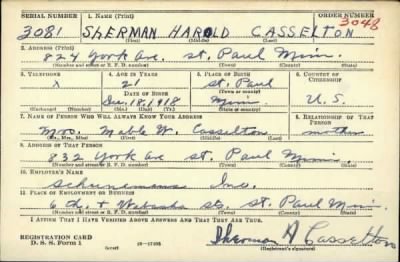 SERIAL NUMBER 1. NAME (Print) ORDER NUMBER
3081 SHERMAN HAROLD CASSELTON 3048
(First) (Middle) (Last)
2. ADDRESS (Print)
824 York Ave. St. Paul Minn.
(Number and street or R. F. D. number) (Town) (County) (State)
3. TELEPHONE 4. AGE IN YEARS 5. PLACE OF BIRTH 6. COUNTRY OF CITIZENSHIP
X 21 St. Paul
(Town or county)
DATE OF BIRTH
Dec. 18, 1918 Minn. U.S.
(Exchange) (Number) (Mo.) (Day) (Yr.) (State or country)
7. NAME OF PERSON WHO WILL ALWAYS KNOW YOUR ADDRESS 8. RELATIONSHIP OF THAT PERSON
Mrs. Mable W. Casselton mother
(Mr., Mrs., Miss) (First) (Middle) (Last)
9. ADDRESS OF THAT PERSON
832 York Ave St. Paul Minn.
(Number and street or R. F. D. number) (Town) (County) (State)
10. EMPLOYER'S NAME
Schunemans Inc.
11. PLACE OF EMPLOYMENT OR BUSINESS
6th. & Wabasha sts. St. Paul Minn.
(Number and street or R. F. D. number) (Town) (County) (State)
I AFFIRM THAT I HAVE VERIFIED ABOVE ANSWERS AND THAT THEY ARE TRUE.
REGISTRATION CARD
D. S. S. Form 1 Sherman H Casselton
(Registrant's signature)